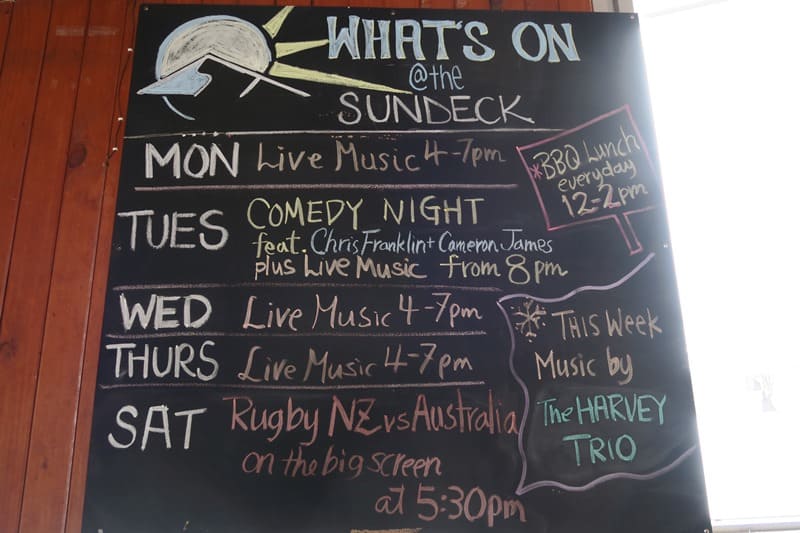 WHAT'S ON
@the
SUNDECK
MON Live Music 4-7pm
*BBQ Lunch
everyday
12-2pm
TUES COMEDY NIGHT
feat. Chris Franklin + Cameron James
plus Live Music from 8pm
WED Live Music 4-7pm
THURS Live Music 4-7pm
SAT Rugby NZ vs Australia
on the big screen
at 5:30pm
* THIS WEEK
Music by
The HARVEY
TRIO